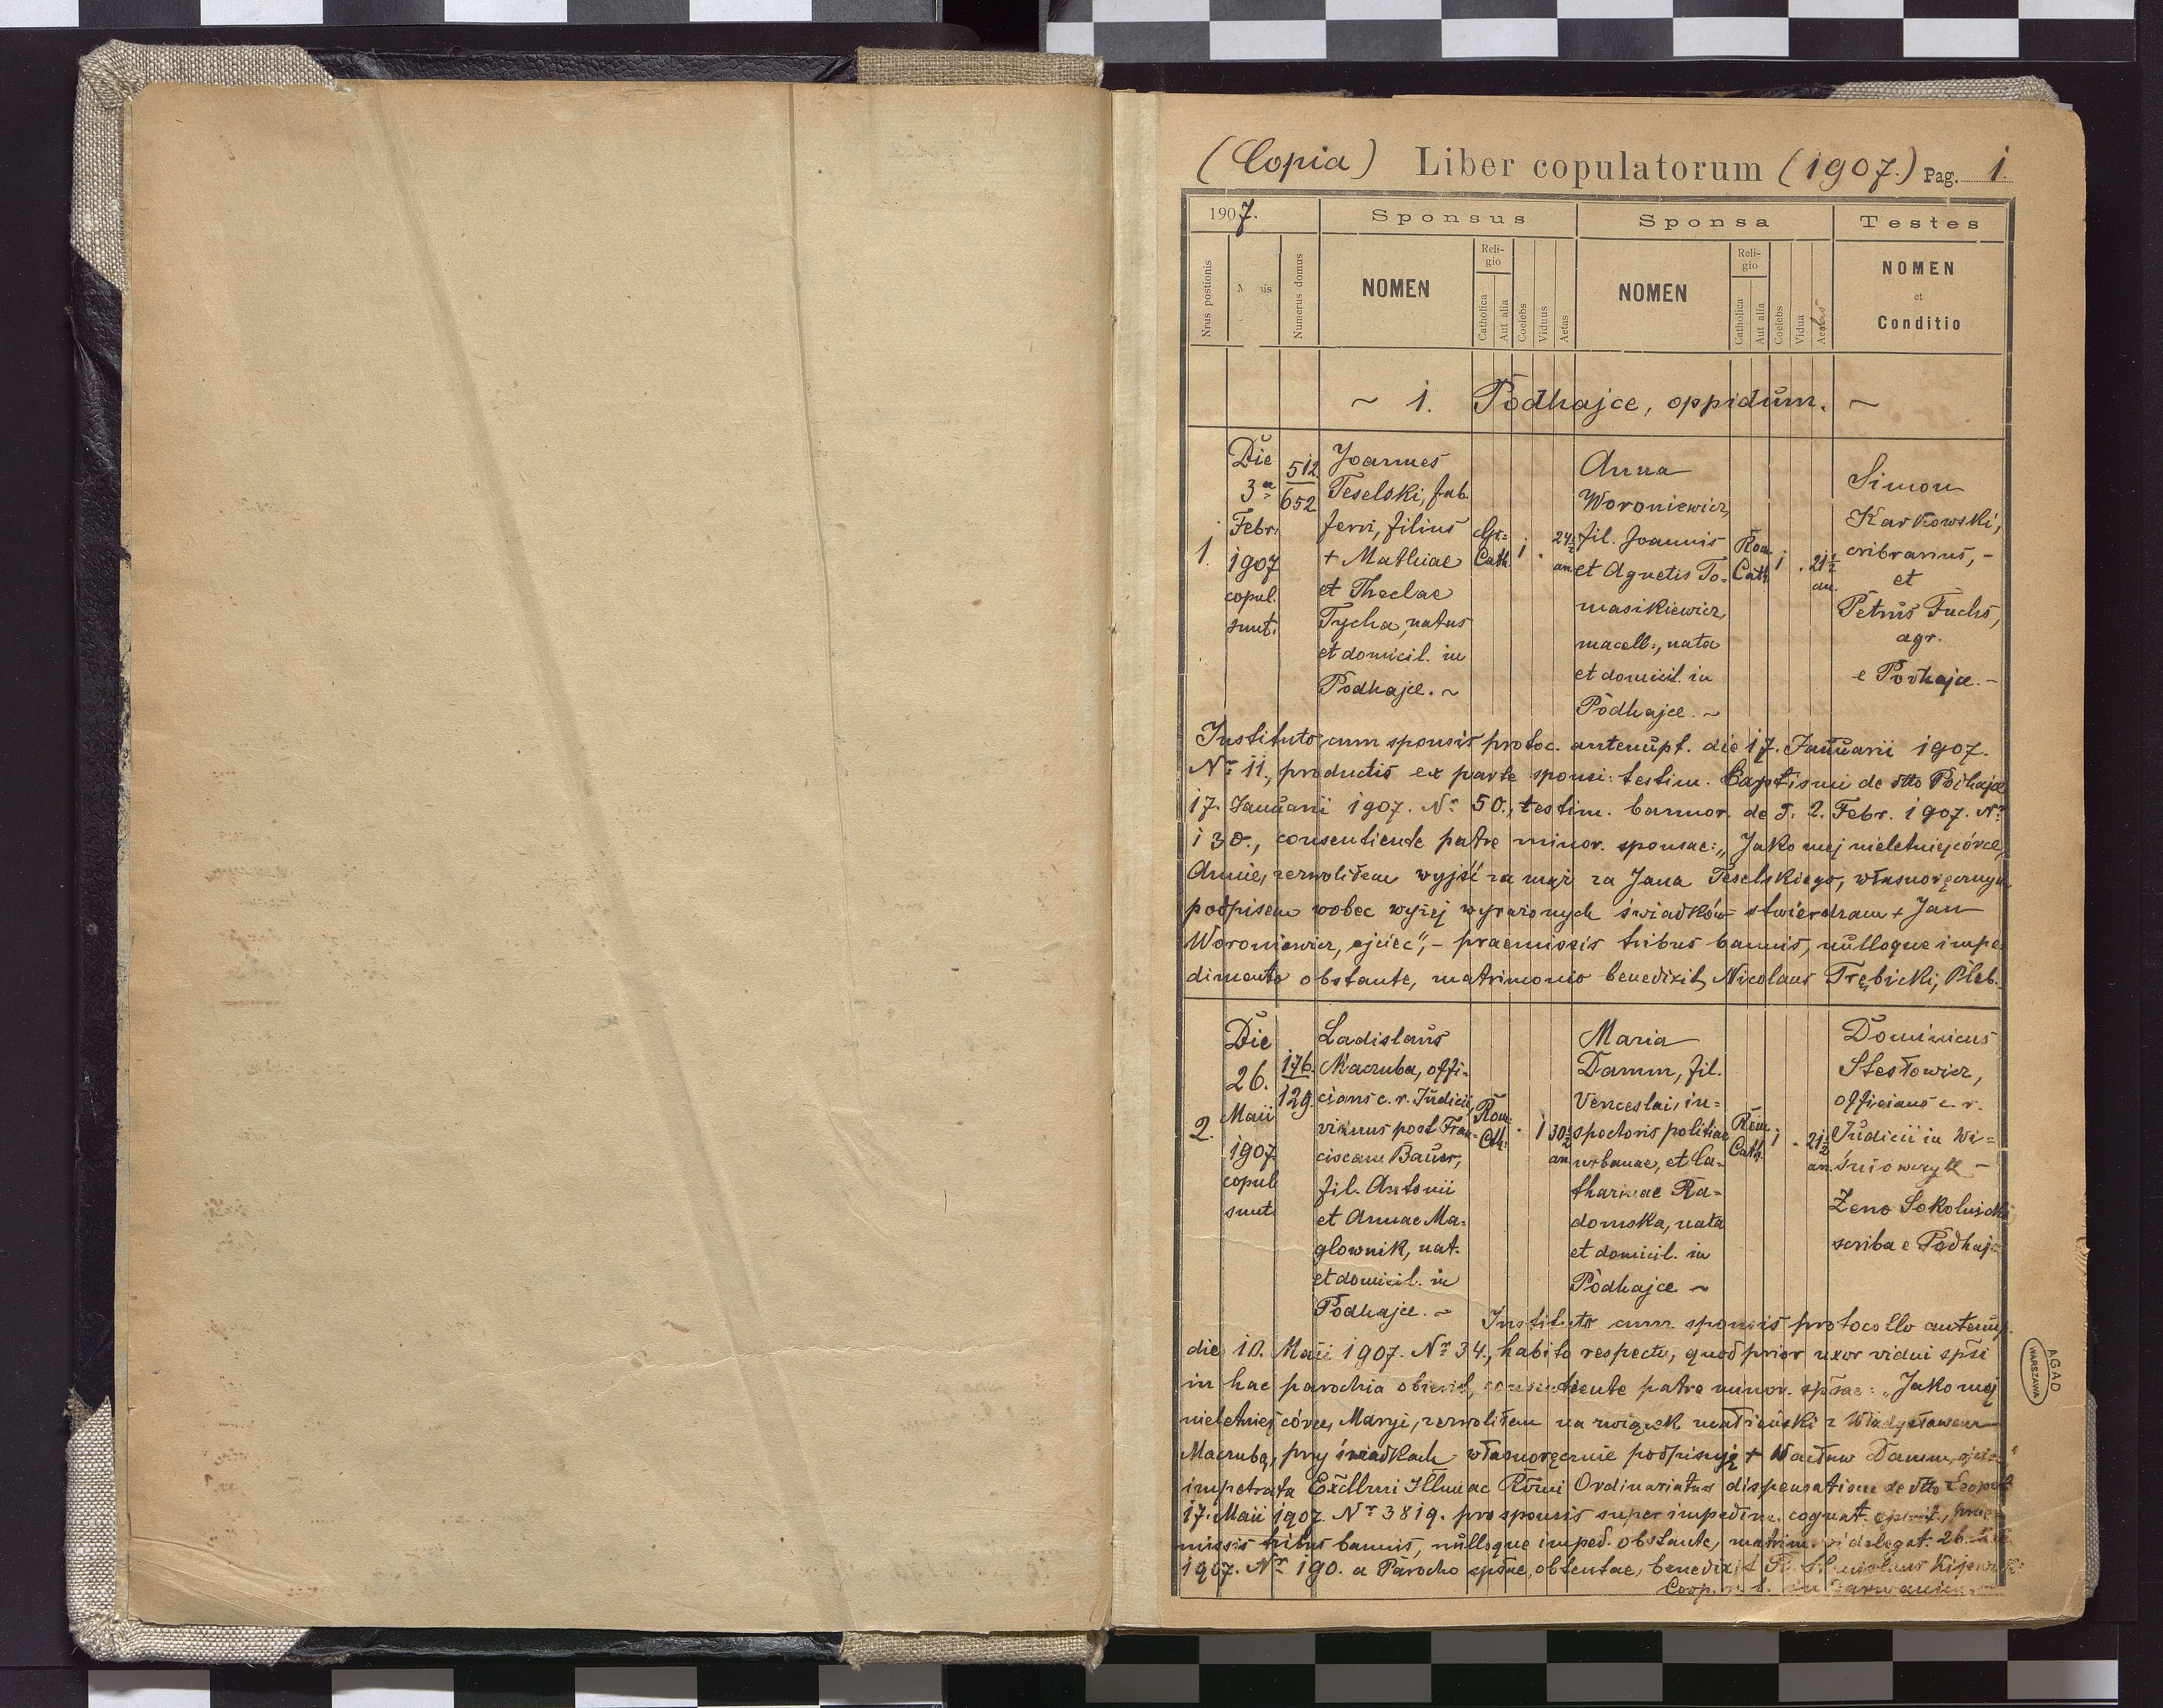 (Copia) Liber copulatorum (1907.) Pag. 1.
1907. Sponsus Sponsa Testes
Nrus postionis Numerus domus NOMEN Religio Catholica Aut alia Coelebs Viduus Aetas NOMEN Religio Catholica Aut alia Coelebs Vidua NOMEN et Conditio
~ 1. Podhajce, oppidum. ~
1.
Die
3a
Febr.
1907
copul.
sunt.
512
652
Joannes
Teselski, fab.
ferri, filius
+ Mathiae
et Theclae
Tycha, natus
et domicil. in
Podhajce. ~
Gr.=
Cath.
1
.
24½
an.
Anna
Woroniewicz,
fil. Joannis
et Agnetis To=
masikiewicz,
macell:, nata
et domicil. in
Podhajce. ~
Rom.
Cath.
1
.
21½
an.
Simon
Karkowski,
cribrarius, -
et
Petrus Fuchs,
agr.
e Podhajce. -
Instituto cum sponsis protoc. antenupt. die 17. Januarii 1907.
Nr 11., productis ex parte sponsi: testim. baptismi de dtto Podhajce
17. Januarii 1907. Nr 50., testim. bannor. de d. 2. Febr. 1907. Nr
130., consentiente patre minor. sponsae: „Jako mej nieletniej córce,
Annie, zezwoliłem wyjść za mąż za Jana Teselskiego, własnoręcznym
podpisem wobec wyżej wyrażonych świadków stwierdzam + Jan
Woroniewicz, ojciec", - praemissis tribus bannis, nulloque impe=
dimento obstante, matrimonio benedixit Nicolaus Trębicki, Pleb.
2.
Die
26.
Maii
1907
copul.
sunt.
176.
129.
Ladislaus
Maczuba, offi=
cians c. r. Judicii,
viduus post Fran=
ciscam Bauer,
fil. Antonii
et Annae Ma=
glownik, nat.
et domicil. in
Podhajce. ~
Rom.
Cth.
.
1
30½
an.
Maria
Damm, fil.
Venceslai, in=
spectoris politiae
urbanae, et Ca=
tharinae Ra=
domska, nata
et domicil. in
Podhajce ~
Rom.
Cath.
1
.
21½
an.
Dominicus
Stesłowicz,
officians c. r.
Judicii in Wi=
śniowczyk -
Zeno Sokolnicki
scriba e Podhaj=
Instituto cum sponsis protocollo antenup.
die 10. Maii 1907. Nr 34., habito respectu, quod prior uxor vidui spsi
in hac parochia obierit, consentiente patre minor. spsae: „Jako mej
nieletniej córce, Maryi, zezwoliłem na związek małżeński z Władysławem
Maczubą, przy świadkach własnoręcznie podpisuję + Wacław Damm, ojciec"
impetrata Excllmi Illmi ac Rmi Ordinariatus dispensatione de dtto Leopoli
17. Maii 1907. Nr 3819. pro sponsis super impedim. cognat. spirit., prae=
missis tribus bannis, nulloque imped. obstante, matrim. vi delegat. 26. Maii
1907. Nr 190. a Parocho spsae, obtentae, benedixit
Coop. r. l. in
AGAD
WARSZAWA